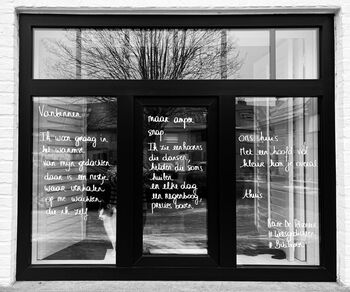 Vanbinnen
Ik woon graag in
het warme
van mijn gedachten
daar is een nestje
waar verhalen
op me wachten
die ik zelf
maar amper
snap.
Ik zie eenhoorns
die dansen,
helden die soms
huilen
en elke dag
een regenboog
precies boven
ons huis
Met een hoofd vol
kleur kom je overal
thuis.
# Raamgedichten